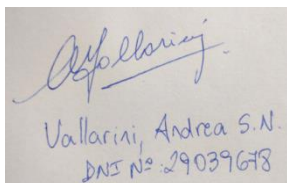 AVallarini
Vallarini, Andrea S.N.
DNI Nº: 29039678